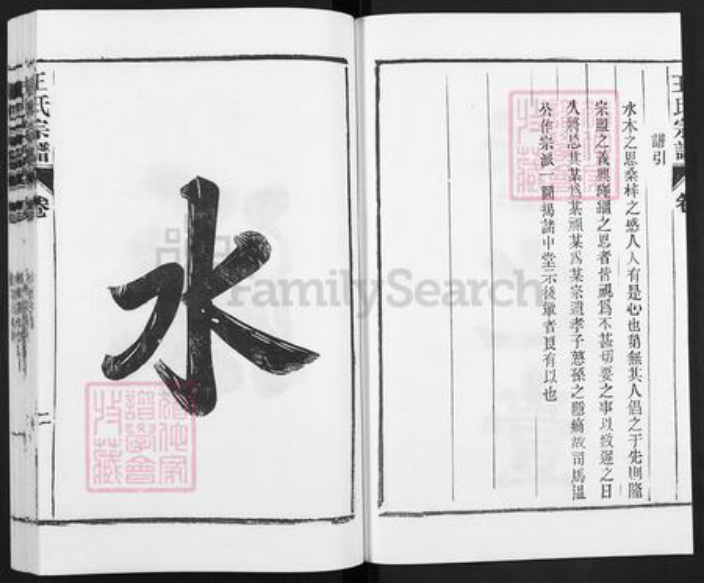 王氏宗譜
卷
譜引
水木之思桑梓之感人人有是心也第無其人倡之于先則隆
宗盟之義興
之思者皆視為不甚切要之事以致遲之日
久將忘其某為某頭某為某宗遺孝子慈孫之隱痛故司馬溫
公作宗派一圖揭諸中堂示後輩者良有以也
水
王氏宗譜
卷
二
FamilySearch